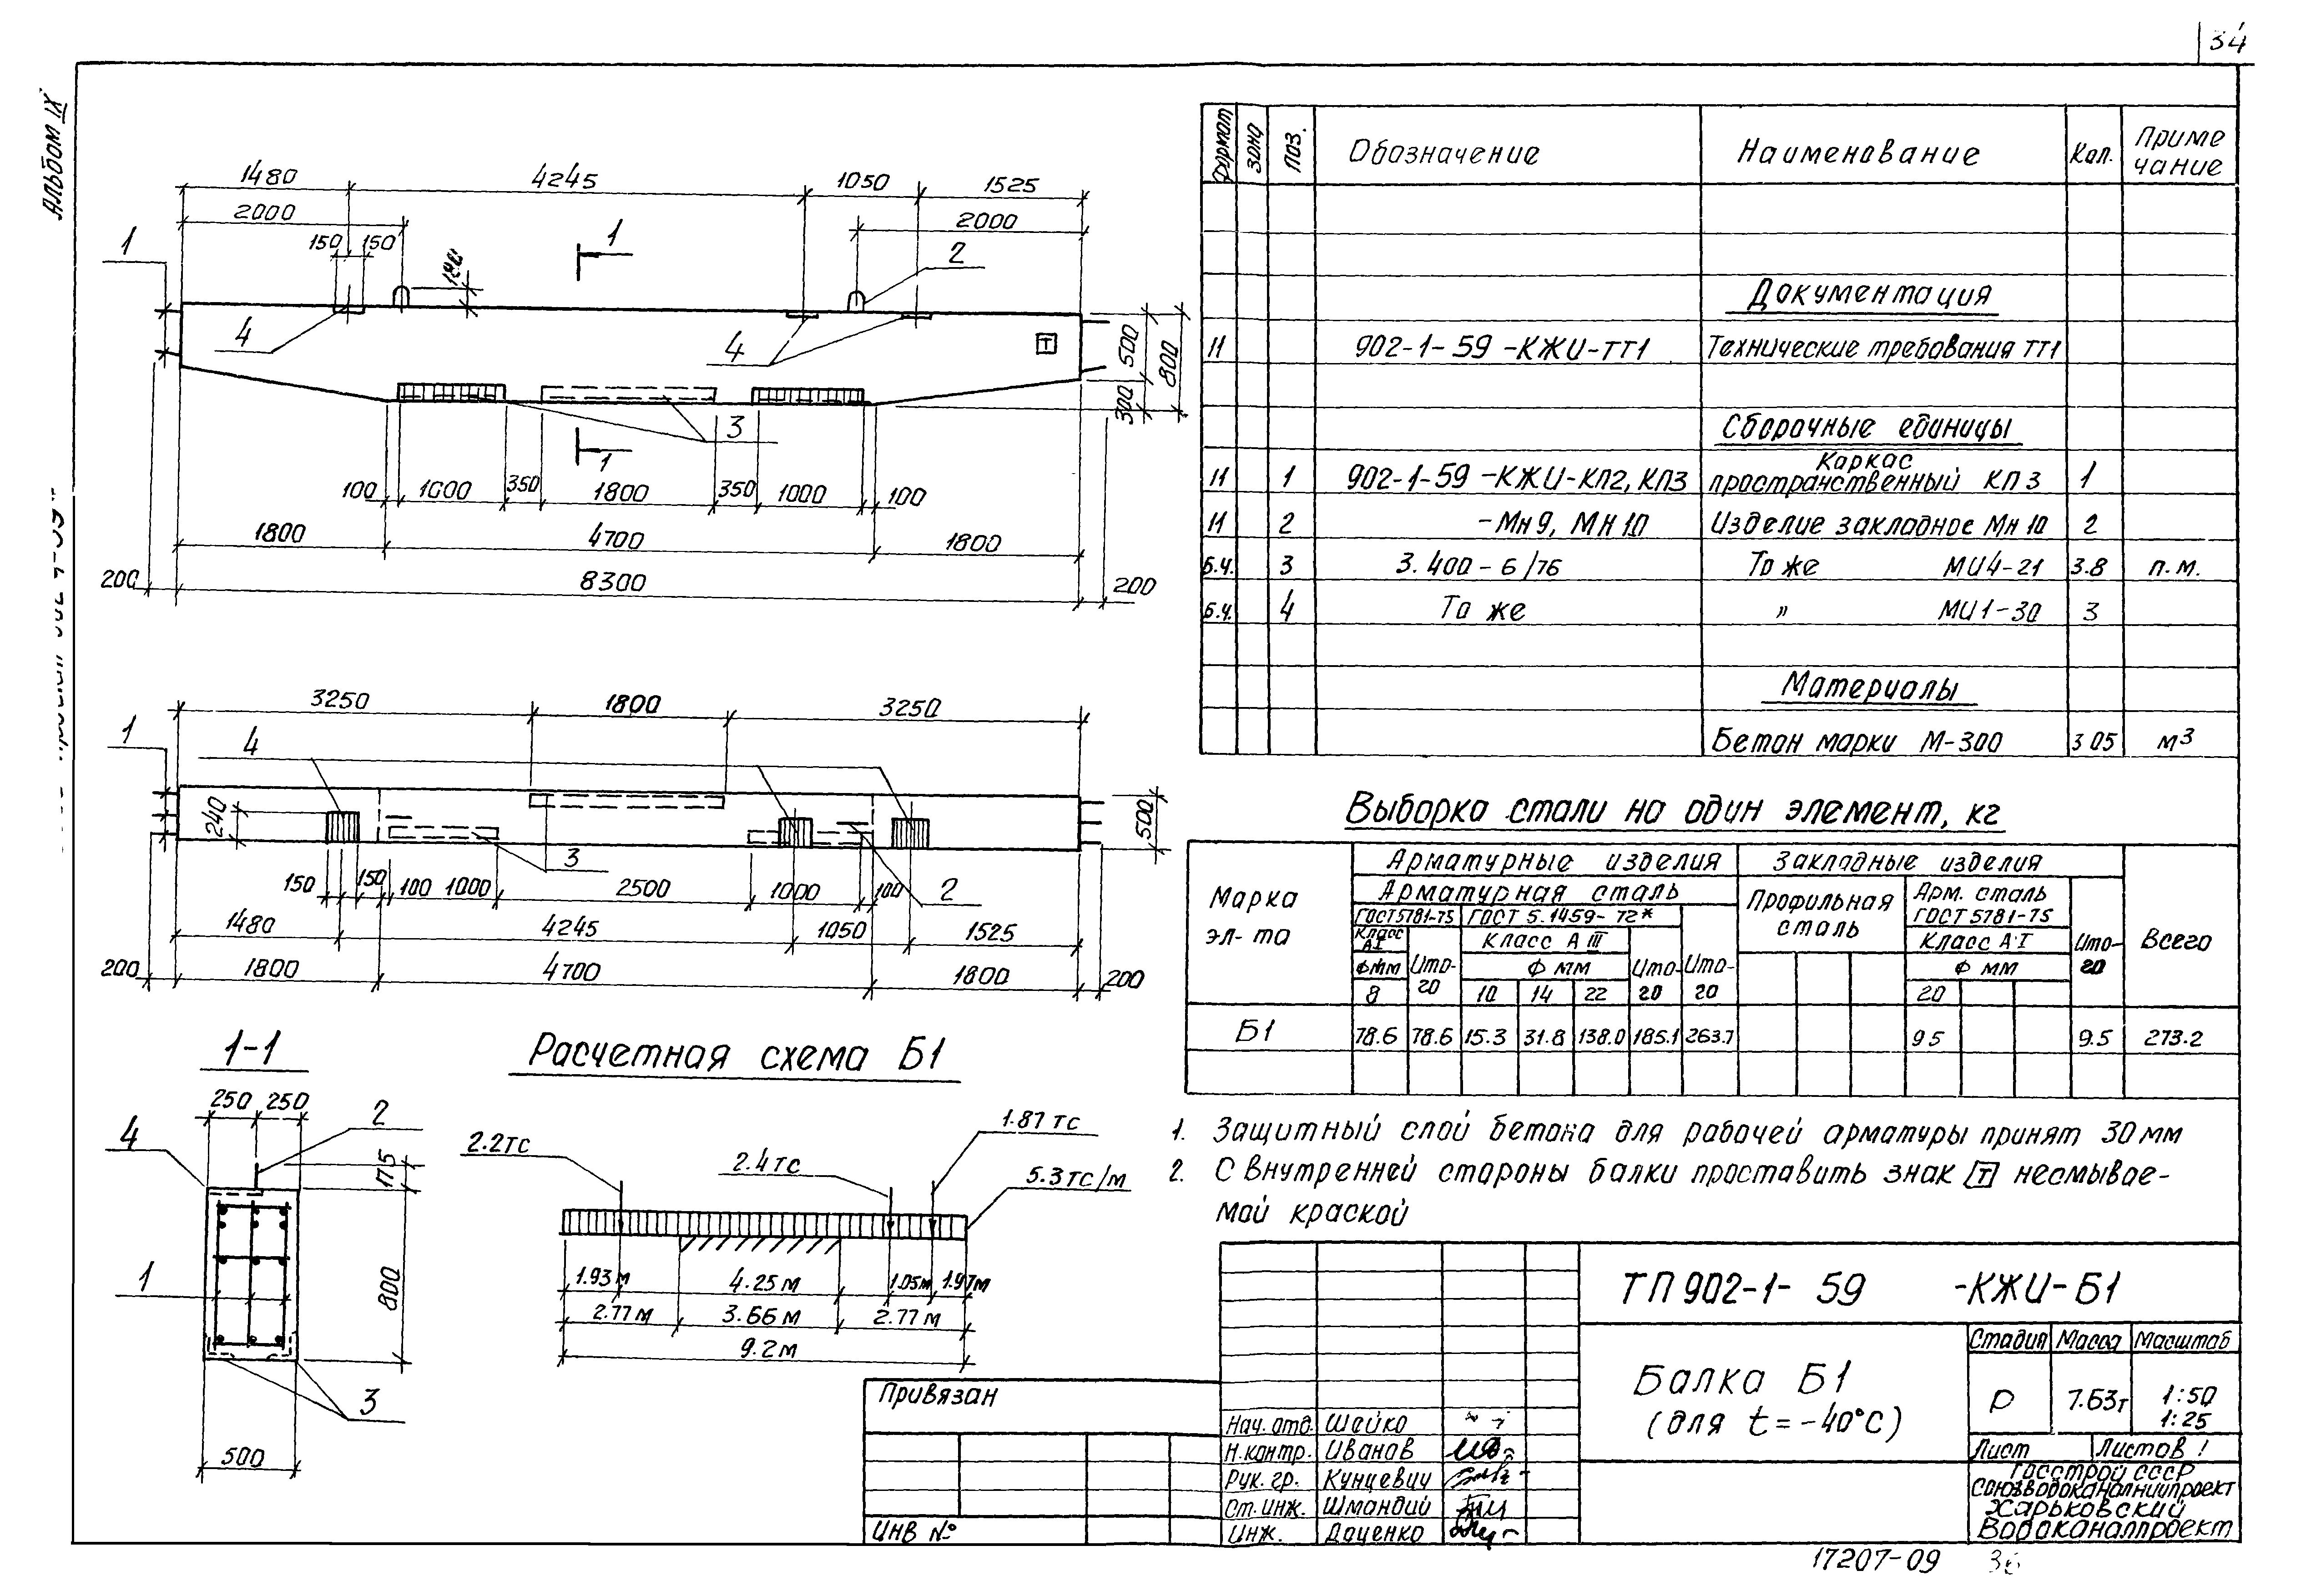 34
Альбом IX
1480 4245 1050 1525
2000 2000
150 150 180
1 1 2
4 4 Т
500 800 300
3
1
100 1000 350 1800 350 1000 100
1800 4700 1800
200 8300 200
3250 1800 3250
1 4
240 500
3 2
150 150 100 1000 2500 1000 100
1480 4245 1050 1525
200 1800 4700 1800 200
1-1
250 250
4 2
175
1 800
3
500
Расчетная схема Б1
2.2тс 2.4тс 1.87 тс
5.3тс/м
1.93 м 4.25 м 1.05м 1.97м
2.77 м 3.66 м 2.77 м
9.2 м
Формат Зона Поз. Обозначение Наименование Кол. Приме
чание
Документация
11 902-1-59-КЖИ-ТТ1 Технические требования ТТ1
Сборочные единицы
Каркас
11 1 902-1-59-КЖИ-КП2, КП3 пространственный КП3 1
11 2 -МН9, МН10 Изделие закладное МН10 2
Б.Ч. 3 3.400-6/76 То же МИ4-21 3.8 п.м.
Б.Ч. 4 То же " МИ1-30 3
Материалы
Бетон марки М-300 3 05 м3
Выборка стали на один элемент, кг
Марка
эл-та
Арматурные изделия Закладные изделия
Арматурная сталь Профильная
сталь Арм. сталь
ГОСТ5781-75 ГОСТ 5.1459-72* ГОСТ 5781-75
Класс
АI Класс А III Класс А-I
Ф мм Ито-
го Ф мм Ито-
го Ито-
го Ф мм Ито-
го Всего
8 10 14 22 20
Б1 78.6 78.6 15.3 31.8 138.0 185.1 263.7 9.5 9.5 273.2
1. Защитный слой бетона для рабочей арматуры принят 30 мм
2. С внутренней стороны балки проставить знак Т несмывае-
мой краской
Привязан
ИНВ №
ТП902-1-59 -КЖИ-Б1
Балка Б1
(для t=-40°С)
Стадия Масса Масштаб
Р 7.63т 1:50
1:25
Лист Листов 1
Госстрой СССР
Союзводоканалниипроект
Харьковский
Водоканалпроект
Нач. отд. Шейко
Н.контр. Иванов
Рук. гр. Кунцевич
Ст. инж. Шмандий
Инж. Доценко
17207-09 36